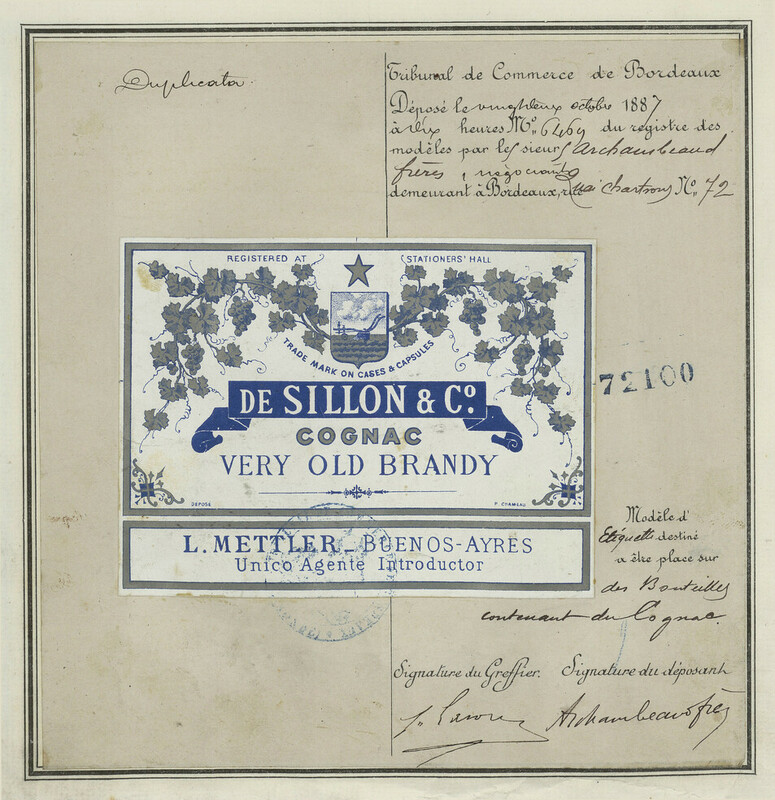 Duplicata.
Tribunal de Commerce de Bordeaux
Déposé le vingt deux octobre 1887
à dix heures No. 6469 du registre des
modèles par les sieurs Archambeaud
frères, négociants
demeurant à Bordeaux, quai chartrons No. 72
REGISTERED AT STATIONERS' HALL
TRADE MARK ON CASES & CAPSULES
DE SILLON & Co.
COGNAC
VERY OLD BRANDY
DÉPOSÉ P. CHAMEAU
L. METTLER_BUENOS-AYRES
Unico Agente Introductor
72100
Modèle d'
Etiquette destiné
a être place sur
des Bouteilles
contenant du Cognac.
Signature du Greffier. Signature du déposant
Archambeaud frères